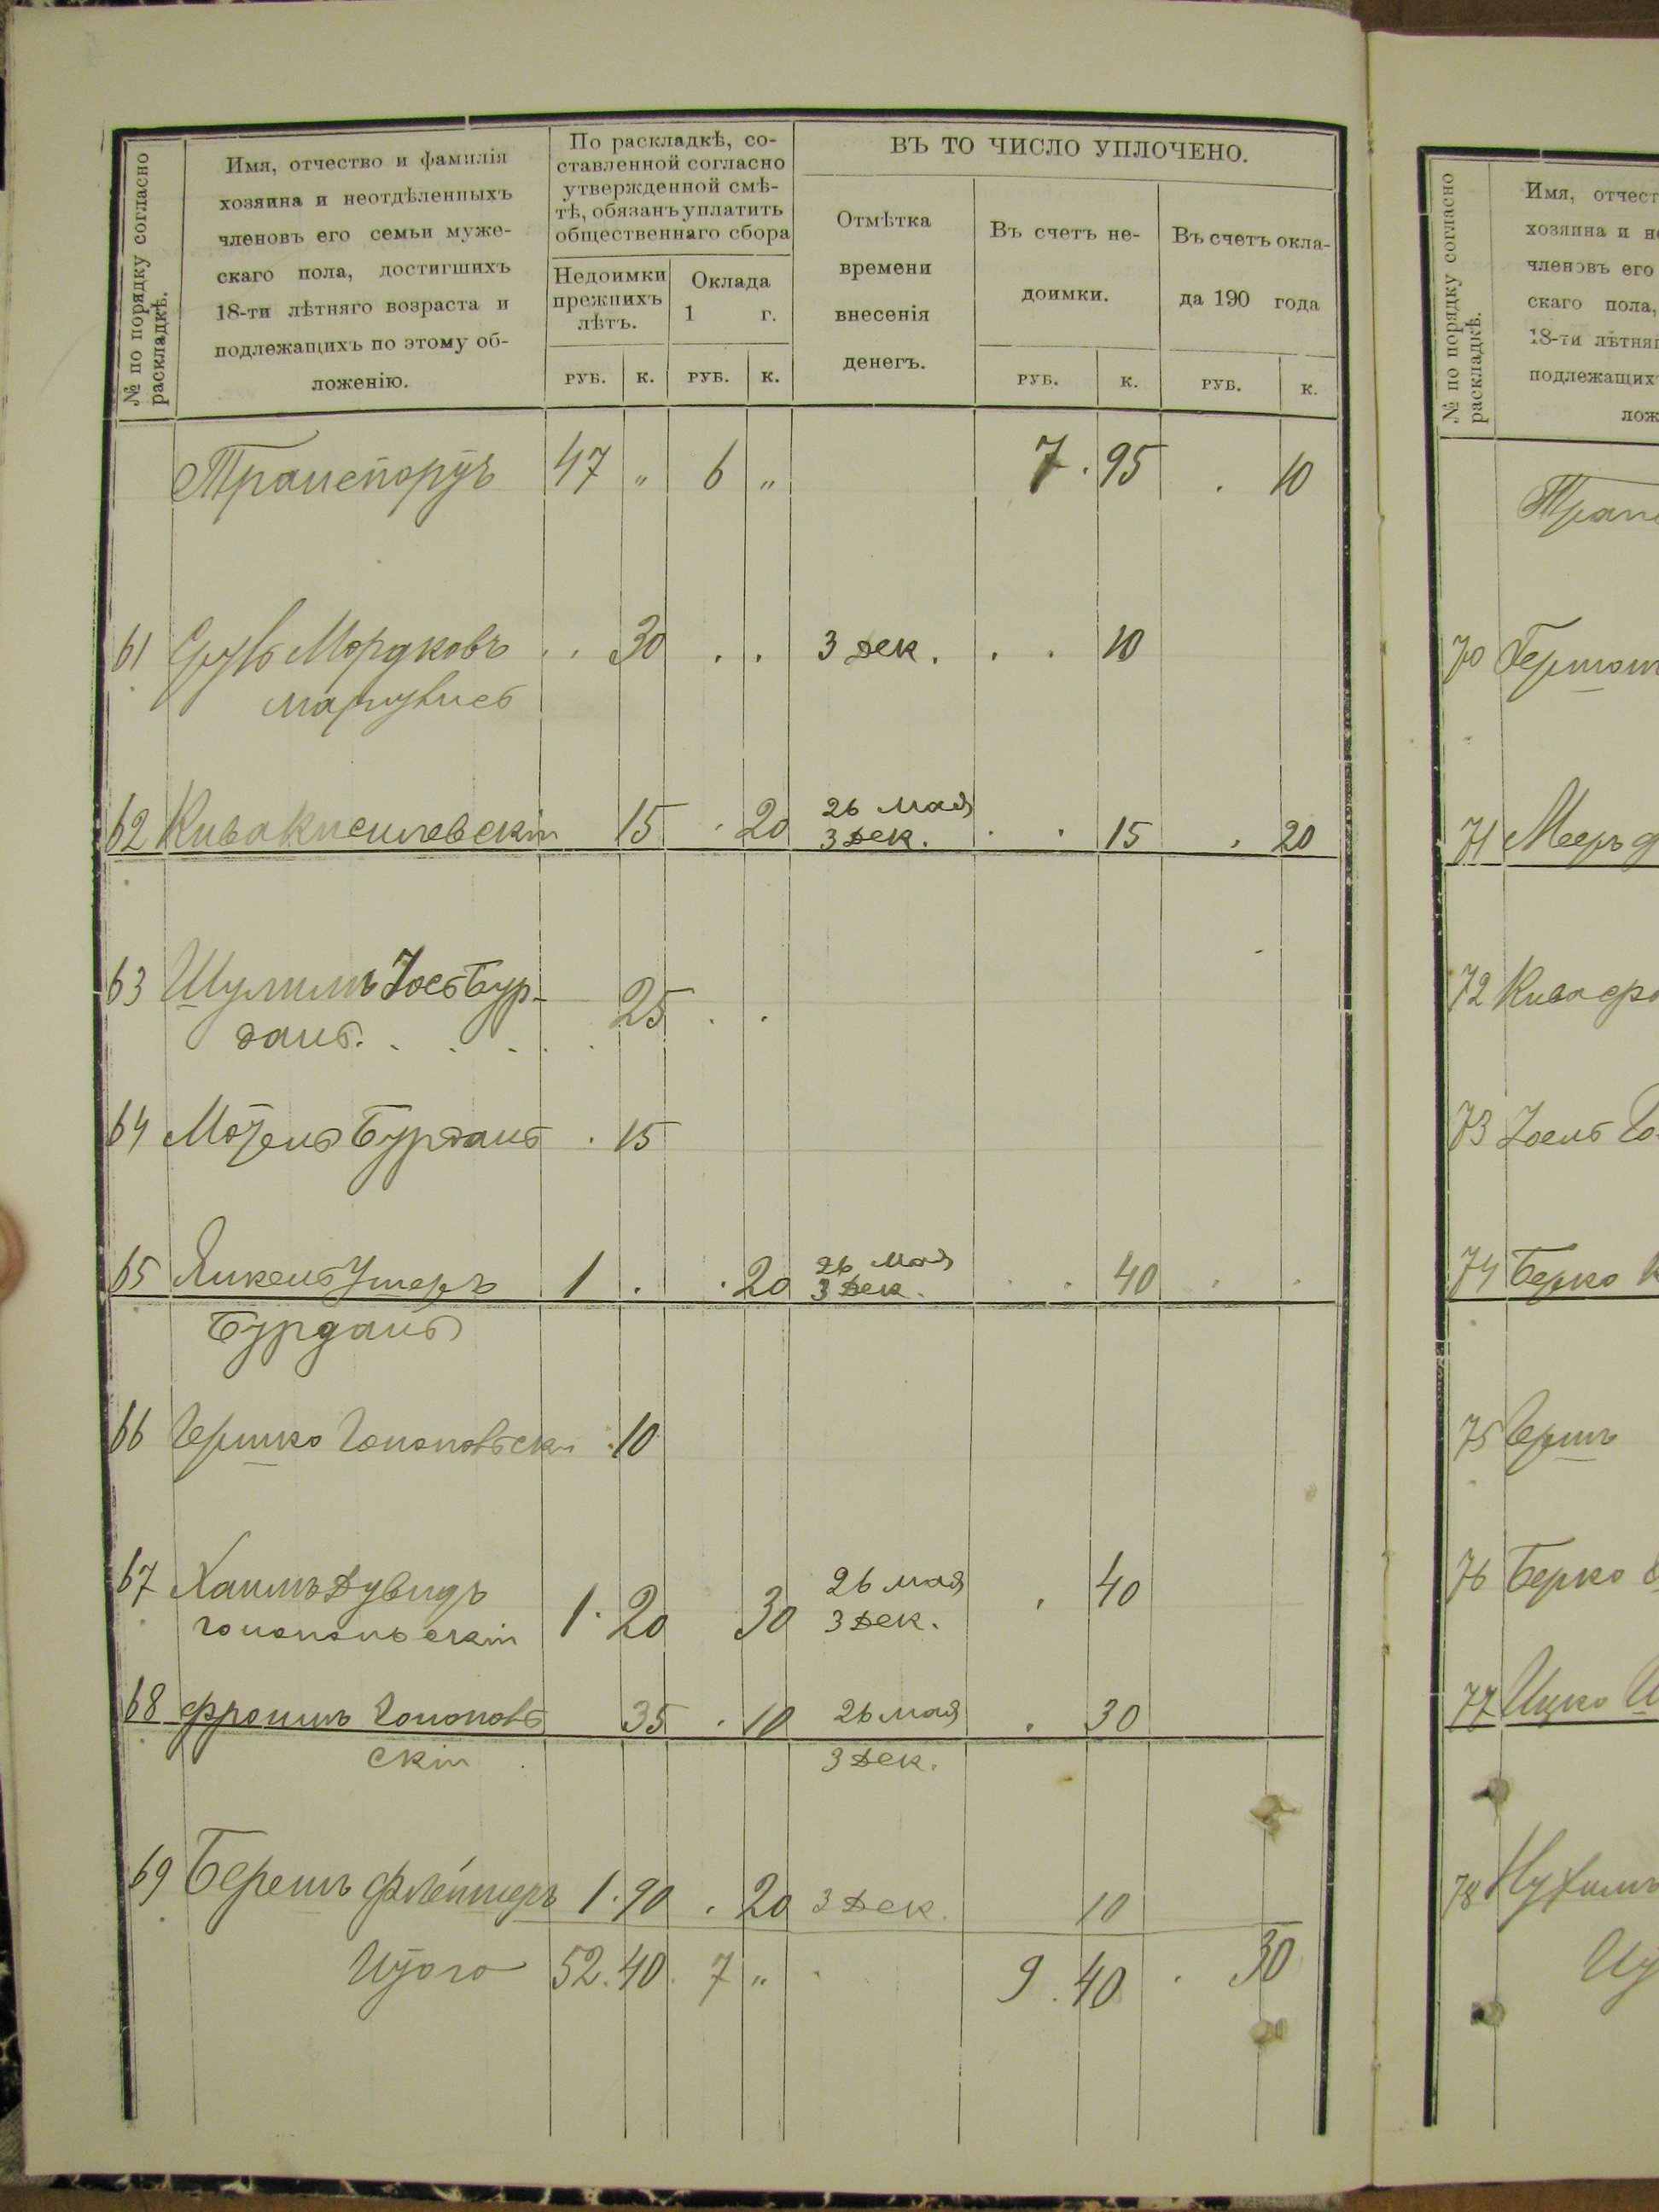 № по порядку согласно
раскладкѣ.
Имя, отчество и фамилія
хозяина и неотдѣленныхъ
членовъ его семьи муже-
скаго пола, достигшихъ
18-ти лѣтняго возраста и
подлежащихъ по этому об-
ложенію.
По раскладкѣ, со-
ставленной согласно
утвержденной смѣ-
тѣ, обязанъ уплатить
общественнаго сбора
Недоимки
прежнихъ
лѣтъ.
Оклада
1 г.
РУБ. К. РУБ. К.
ВЪ ТО ЧИСЛО УПЛОЧЕНО.
Отмѣтка
времени
внесенія
денегъ.
Въ счетъ не-
доимки.
РУБ. К.
Въ счетъ окла-
да 190 года
РУБ. К.
Транспортъ 47 " 6 " 7 . 95 . 10
61 Мордковъ . . 30 . . 3 Дек. . . 10
62 Кива Кисилевскій 15 . 20 26 мая 3 Дек. . . 15 . 20
63 Шулимъ Іось Бур-
данъ. . . . . 25 . .
64 Мотель Бурданъ . 15
65 Янкель Ушеръ 1 . . 20 26 мая 3 Дек. . . 40 . .
Бурданъ
66 Гершко Гонопольски . 10
67 Хаимъ Дувидъ
гонопольскій 1 . 20 30 26 мая 3 Дек. . 40
68 Фроимъ Гонополь 35 . 10 26 мая . 30
скій . 3 Дек.
69 Берешъ Флейшеръ 1 . 90 . 20 3 Дек. 10
Итого 52 . 40 . 7 " 9 . 40 . 30
№ по порядку согласно
раскладкѣ.
Имя, отчест
хозяина и не
членовъ его
скаго пола,
18-ти лѣтняг
подлежащихъ
лож
Транс
70
71 Мееръ
72 Кива
73 Іоель
74 Берко К
75 Гершъ
76 Берко
77 Ицко
78 Нухимъ
Ит